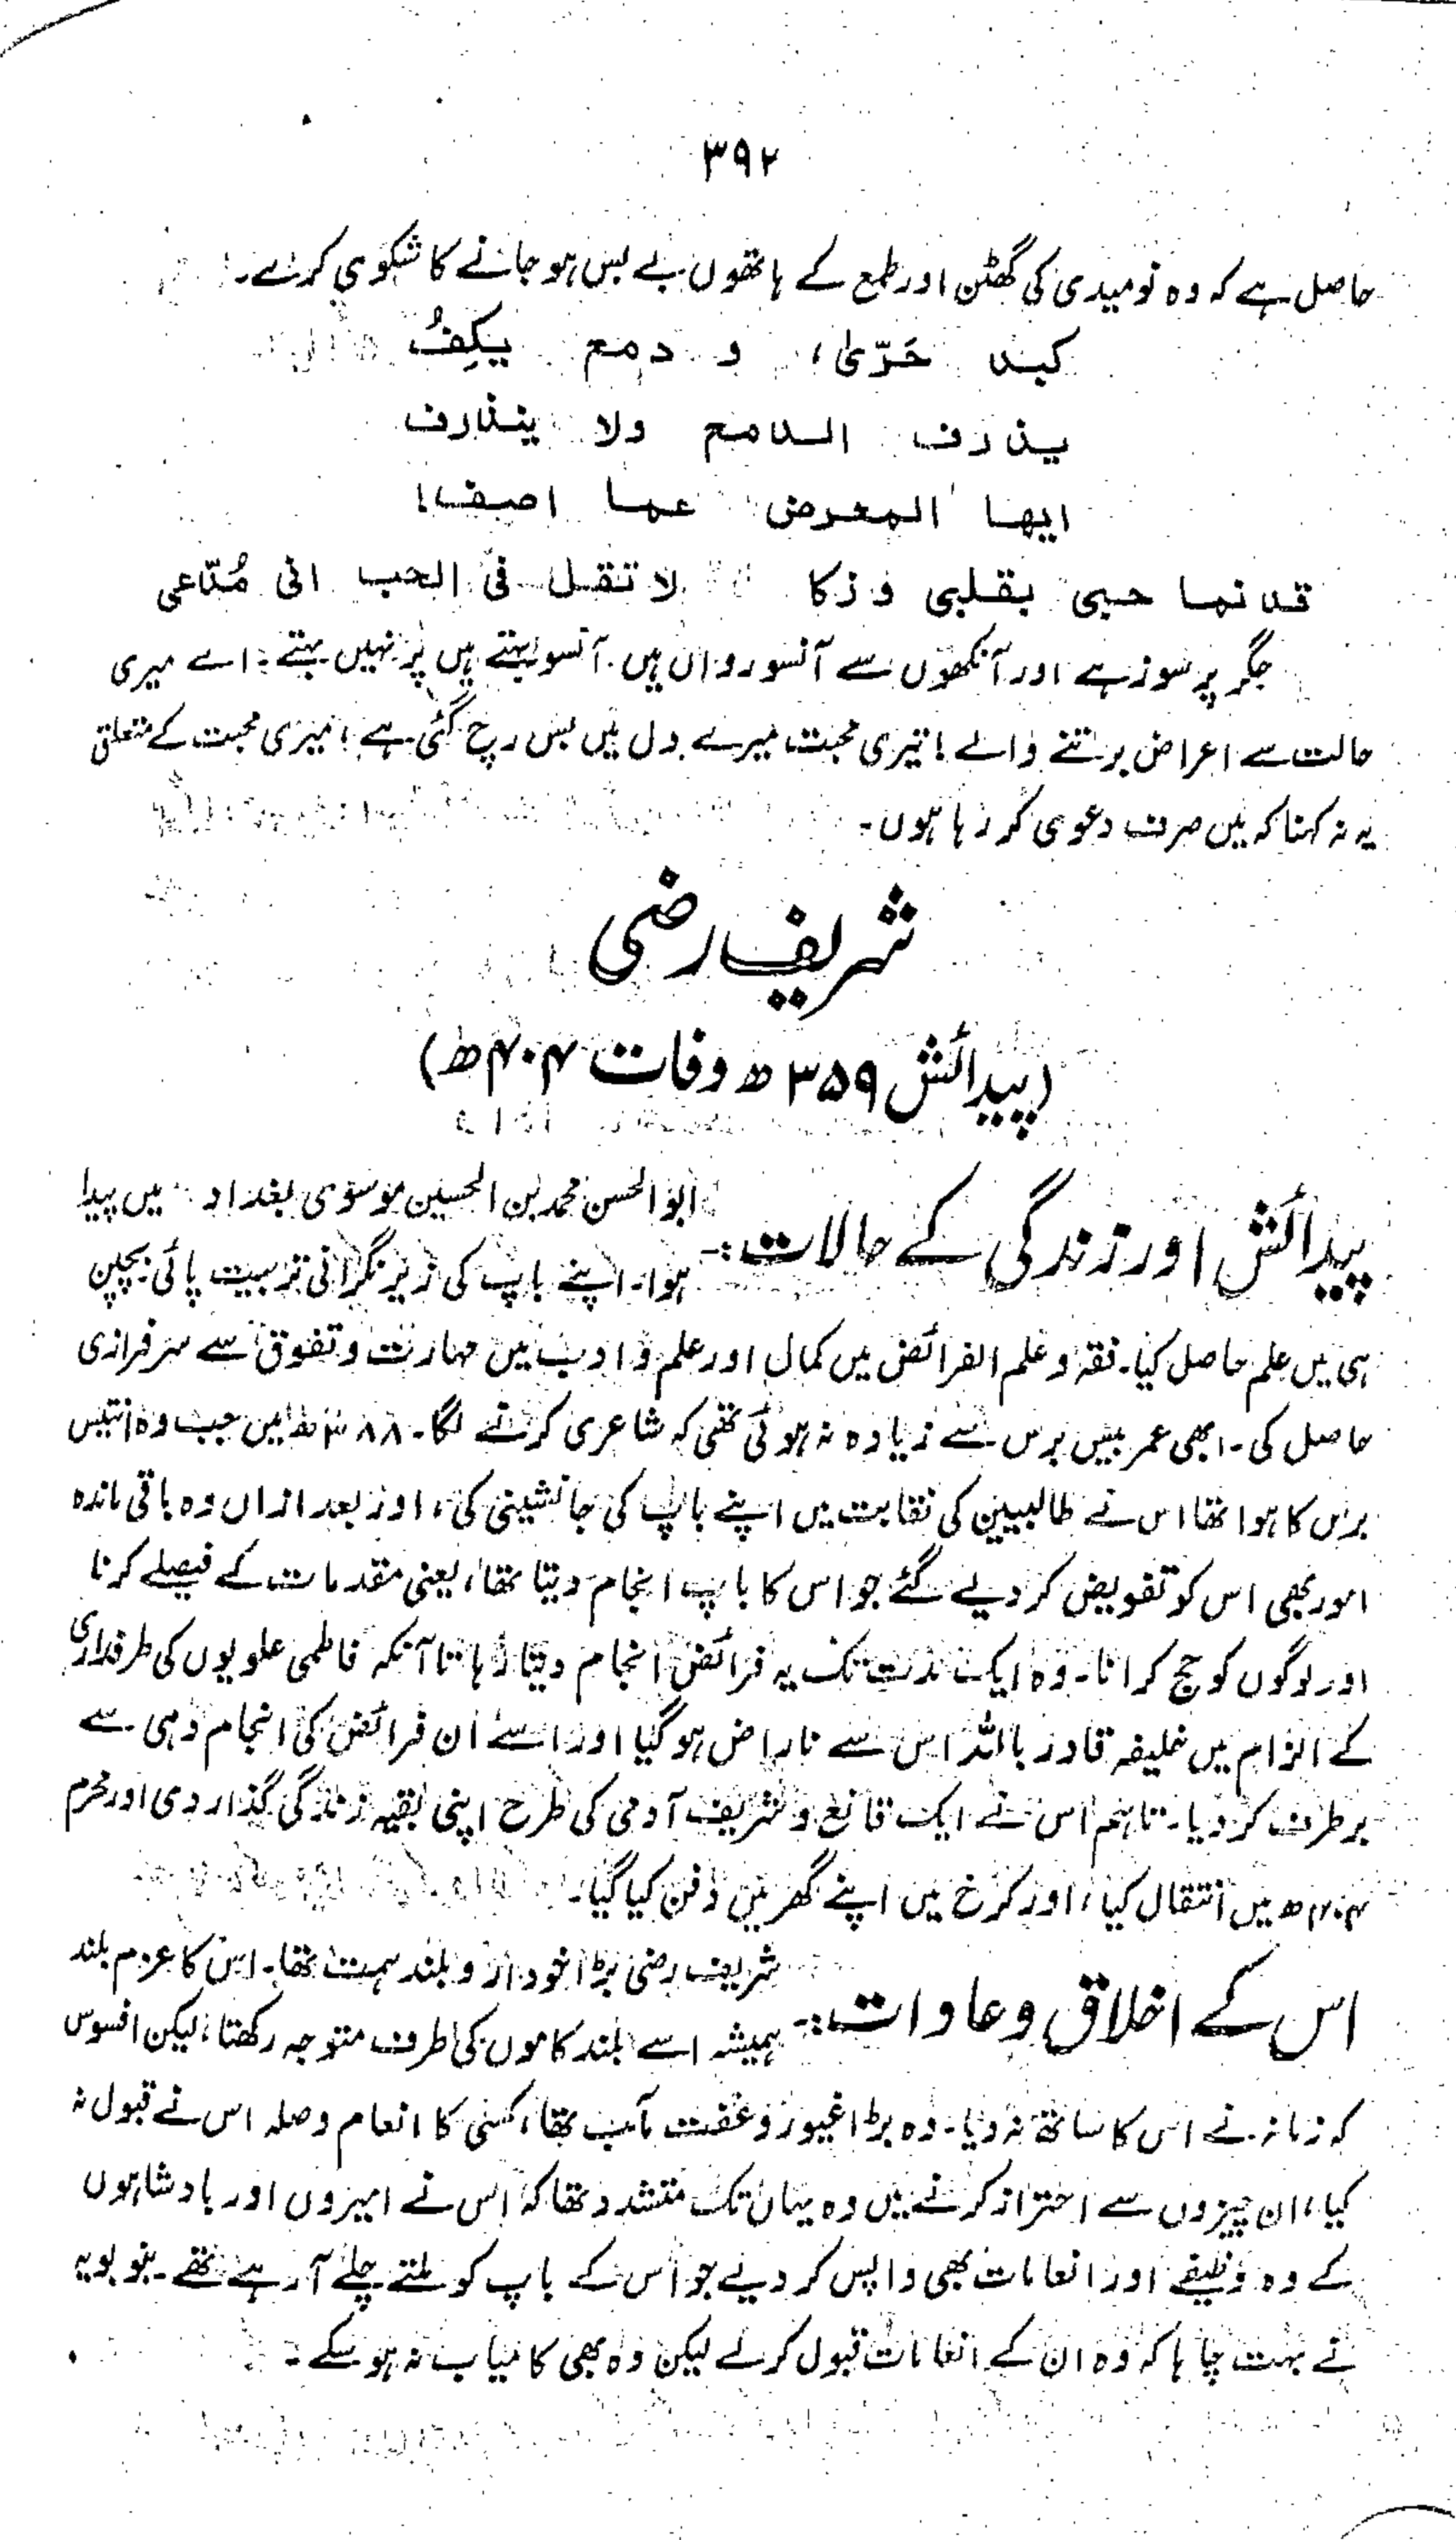 ۳۹۲
حاصل ہے کہ وہ نومیدی کی گھٹن اور طمع کے ہاتھوں بے بس ہو جانے کا شکوی کرے۔
کبد حَرّیٰ، و دمع یکِفُ
یذرف الدمع ولا ینذارف
ایها المعرض عما اصف!
قد نما حبی بقلبی وزکا لا تقل فی الحب انی مُدّعی
جگر پر سوز ہے اور آنکھوں سے آنسو رواں ہیں۔ آنسو بہتے ہیں پر نہیں بہتے۔ اے میری
حالت سے اعراض برتنے والے! تیری محبت میرے دل میں بس رچ گئی ہے، میری محبت کے متعلق
یہ نہ کہنا کہ میں صرف دعوی کر رہا ہوں۔
شریف رضی
(پیدائش ۳۵۹ھ وفات ۴۰۴ھ)
پیدائش اور زندگی کے حالات:- ابوالحسن محمد بن الحسین موسوی بغداد میں پیدا
ہوا۔ اپنے باپ کی زیر نگرانی تربیت پائی۔ بچپن
ہی میں علم حاصل کیا۔ فقہ و علم الفرائض میں کمال اور علم و ادب میں مہارت و تفوق سے سرفرازی
حاصل کی۔ ابھی عمر بیس برس سے زیادہ نہ ہوئی تھی کہ شاعری کرنے لگا۔ ۳۸۸ھ میں جب وہ انتیس
برس کا ہوا تھا اس نے طالبیین کی نقابت میں اپنے باپ کی جانشینی کی، اور بعد ازاں وہ باقی ماندہ
امور بھی اس کو تفویض کر دیے گئے جو اس کا باپ انجام دیتا تھا، یعنی مقدمات کے فیصلے کرنا
اور لوگوں کو حج کرانا۔ وہ ایک مدت تک یہ فرائض انجام دیتا رہا تا آنکہ فاطمی علویوں کی طرفداری
کے الزام میں خلیفہ قادر باللہ اس سے ناراض ہو گیا اور اسے ان فرائض کی انجام دہی سے
برطرف کر دیا۔ تاہم اس نے ایک قانع و شریف آدمی کی طرح اپنی بقیہ زندگی گذار دی اور محرم
۴۰۴ھ میں انتقال کیا، اور کرخ میں اپنے گھر میں دفن کیا گیا۔
اس کے اخلاق و عادات:- شریف رضی بڑا خوددار و بلند ہمت تھا۔ اس کا عزم بلند
ہمیشہ اسے بلند کاموں کی طرف متوجہ رکھتا، لیکن افسوس
کہ زمانہ نے اس کا ساتھ نہ دیا۔ وہ بڑا غیور و عفت مآب تھا، کسی کا انعام و صلہ اس نے قبول نہ
کیا، ان چیزوں سے احتراز کرنے میں وہ یہاں تک متشدد تھا کہ اس نے امیروں اور بادشاہوں
کے وہ وظیفے اور انعامات بھی واپس کر دیے جو اس کے باپ کو ملتے چلے آ رہے تھے۔ بنو بویہ
نے بہت چاہا کہ وہ ان کے انعامات قبول کرلے لیکن وہ بھی کامیاب نہ ہو سکے۔